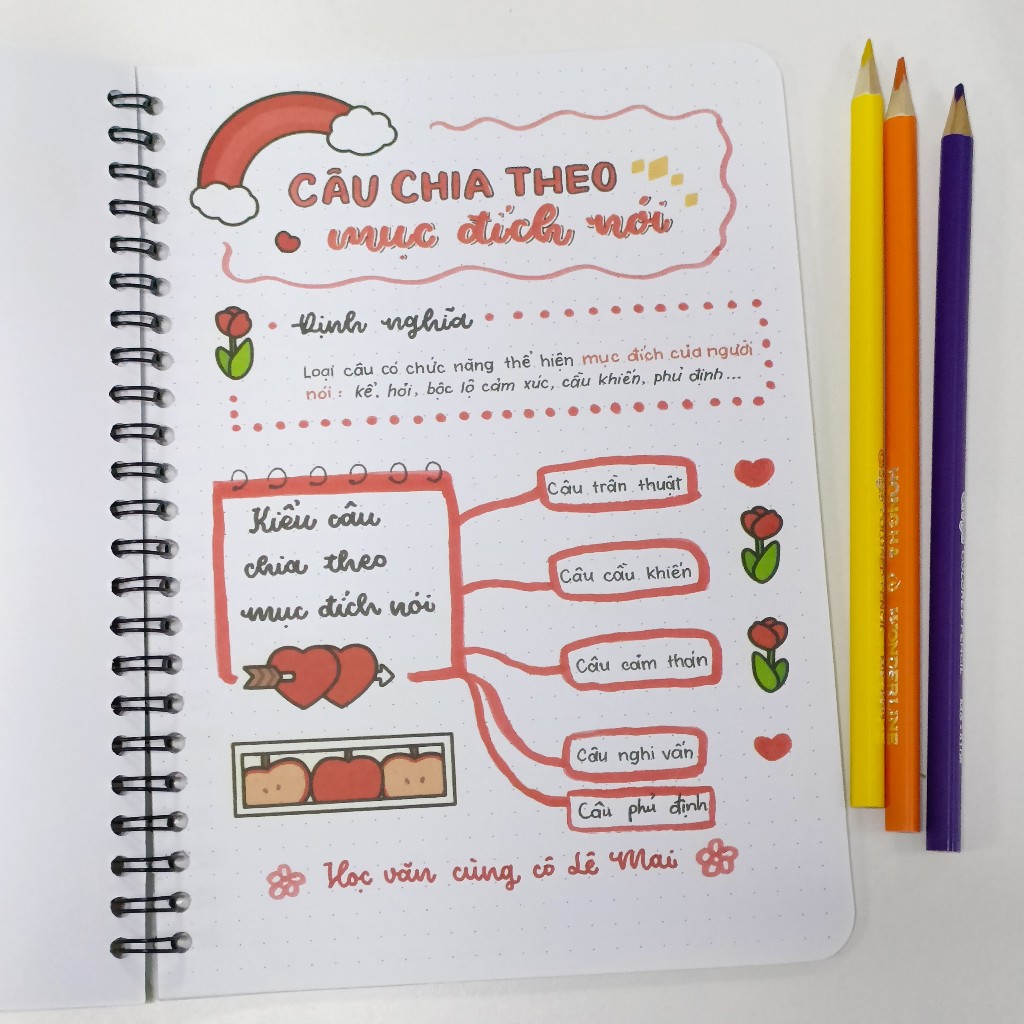 CÂU CHIA THEO
mục đích nói
Định nghĩa
Loại câu có chức năng thể hiện mục đích của người
nói: kể, hỏi, bộc lộ cảm xúc, cầu khiến, phủ định...
Kiểu câu
chia theo
mục đích nói
Câu trần thuật
Câu cầu khiến
Câu cảm thán
Câu nghi vấn
Câu phủ định
Học văn cùng cô Lê Mai
WONDERLINE